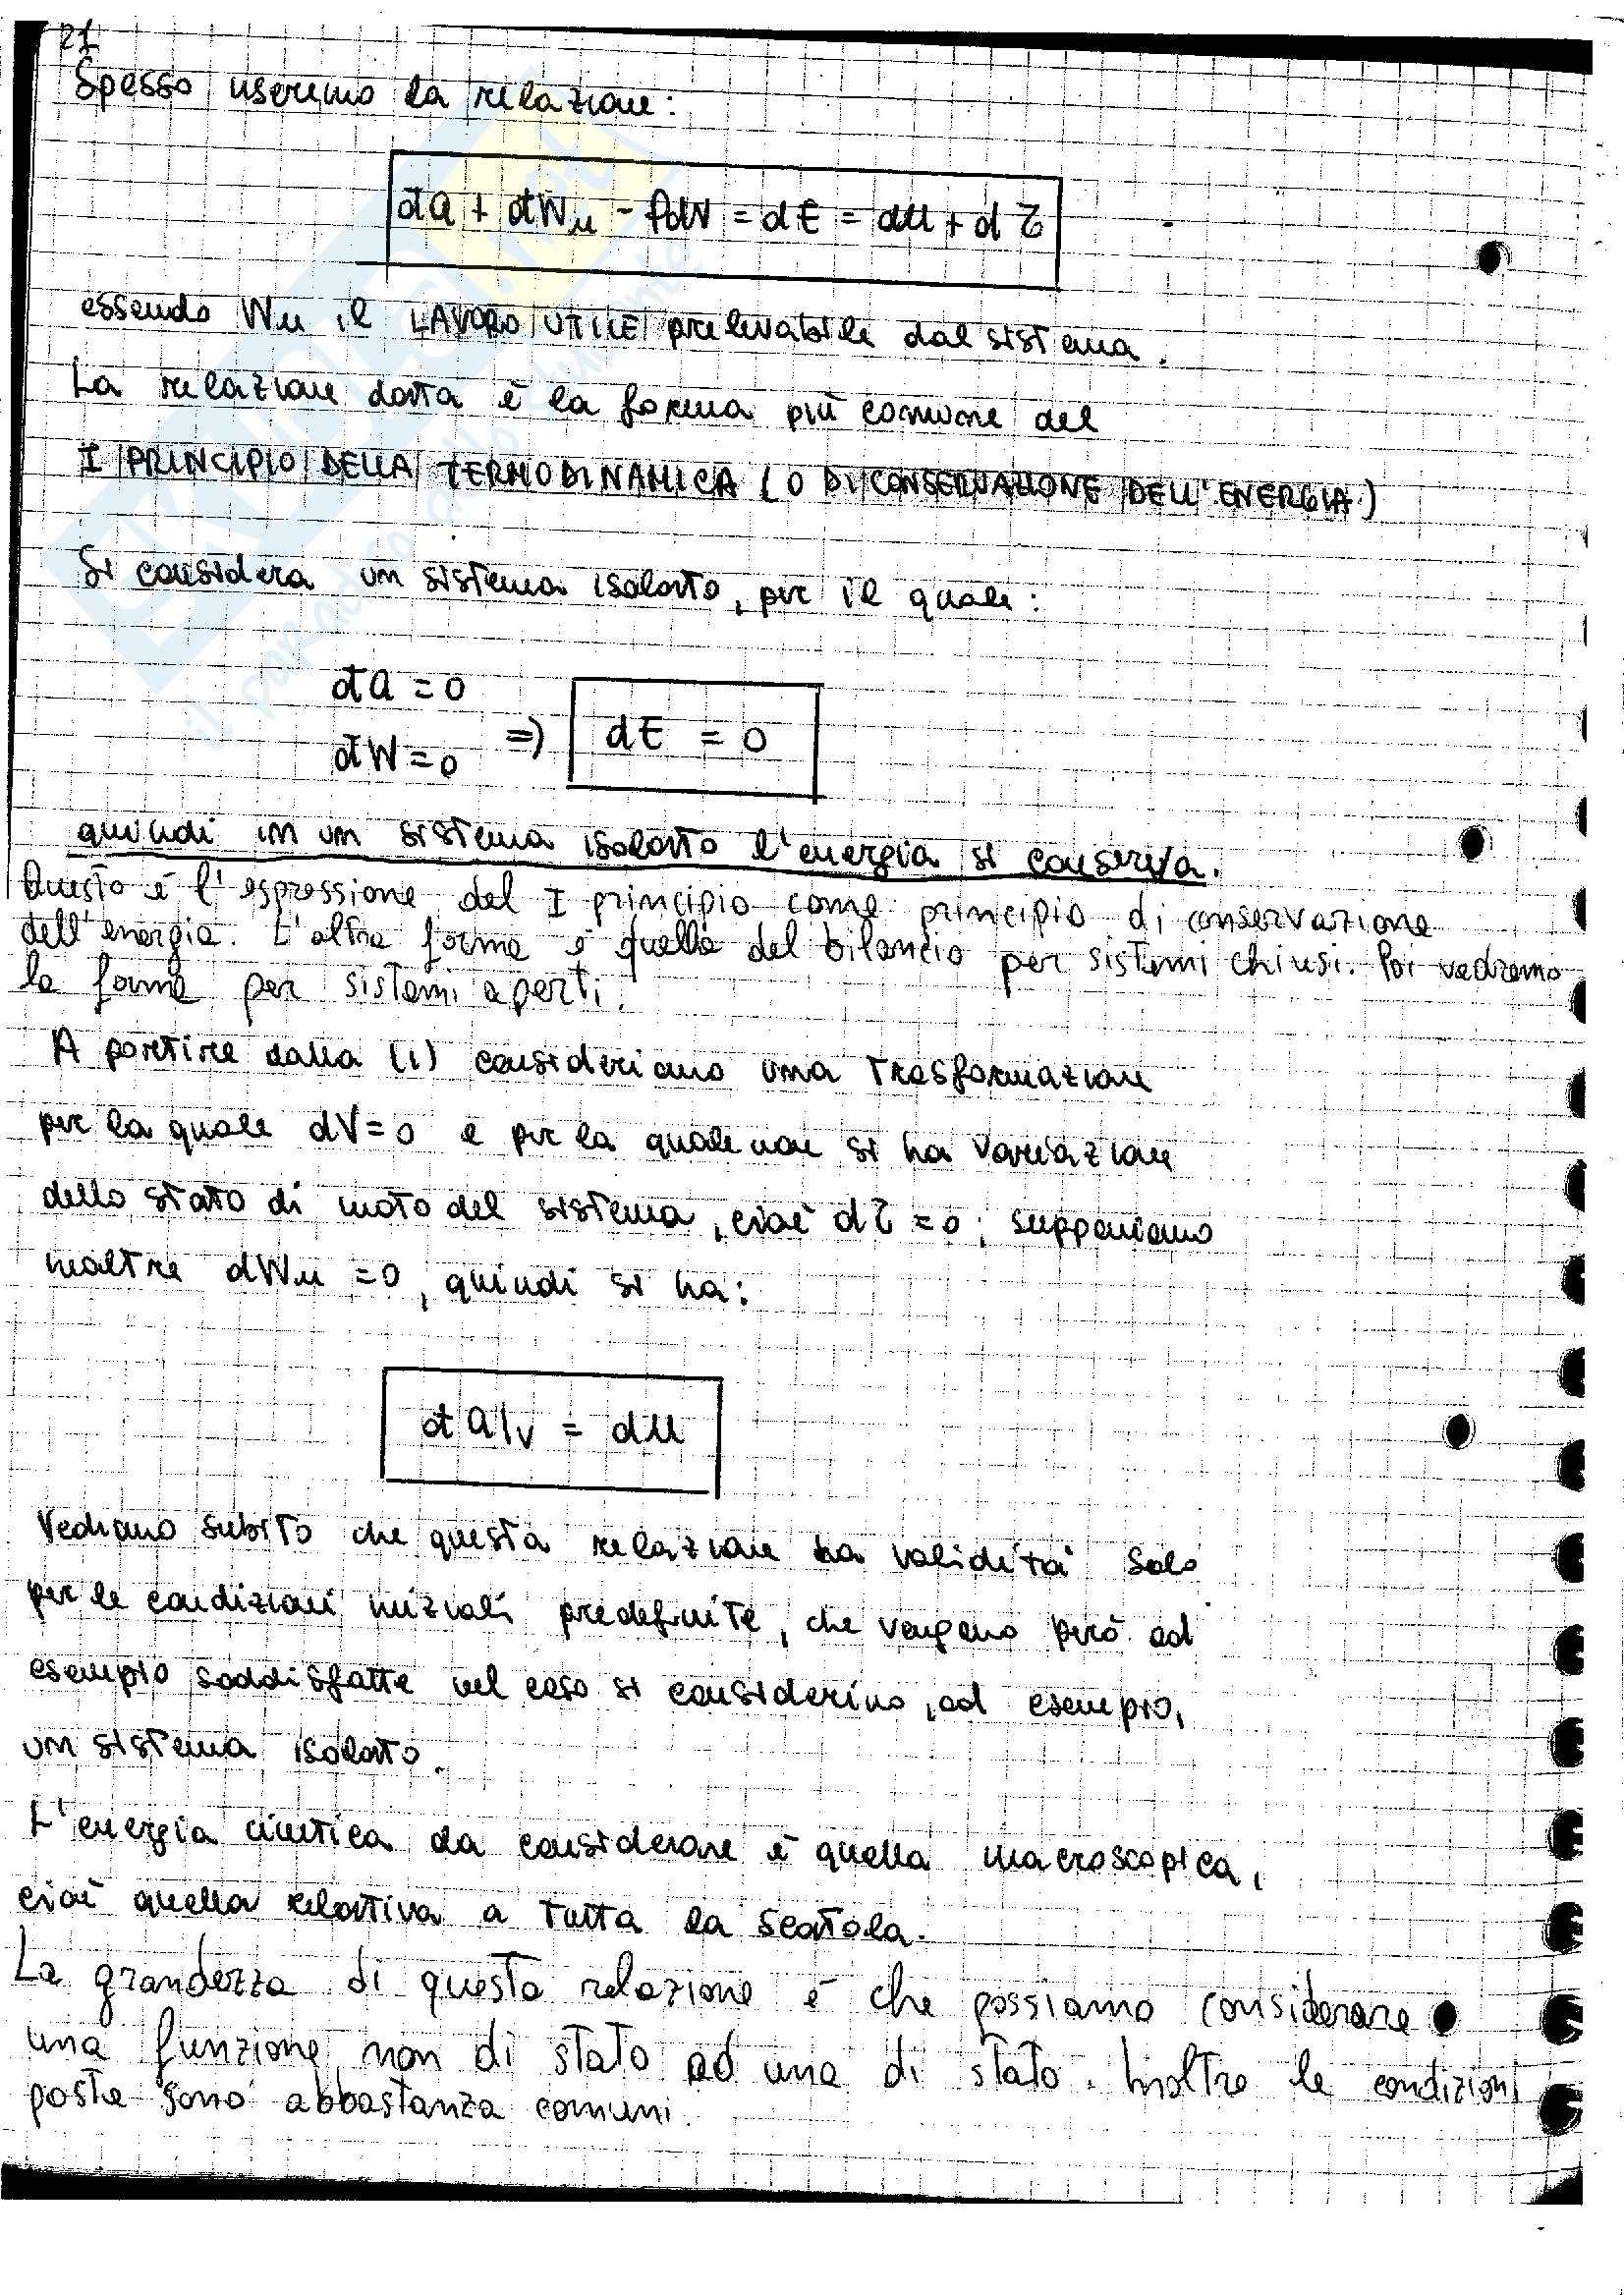 21
Spesso useremo la relazione:
đQ + đWu - PdV = dE = dU + dτ
essendo Wu il LAVORO UTILE prelevabile dal sistema.
La relazione data è la forma più comune del
I PRINCIPIO DELLA TERMODINAMICA (O DI CONSERVAZIONE DELL'ENERGIA)
Si considera un sistema isolato, per il quale:
đQ = 0
đW = 0 => dE = 0
quindi in un sistema isolato l'energia si conserva.
Questo è l'espressione del I principio come principio di conservazione
dell'energia. L'altra forma è quella del bilancio per sistemi chiusi. Poi vedremo
la forma per sistemi aperti.
A partire dalla (1) consideriamo una trasformazione
per la quale dV=0 e per la quale non si ha variazione
dello stato di moto del sistema, cioè dτ = 0; supponiamo
inoltre đWu = 0, quindi si ha:
đQ|v = dU
Vediamo subito che questa relazione ha validità solo
per le condizioni iniziali predefinite, che vengono però ad
esempio soddisfatte nel caso si considerino, ad esempio,
un sistema isolato.
L'energia cinetica da considerare è quella macroscopica,
cioè quella relativa a tutta la scatola.
La grandezza di questa relazione è che possiamo considerare
una funzione non di stato ad una di stato. Inoltre le condizioni
poste sono abbastanza comuni.